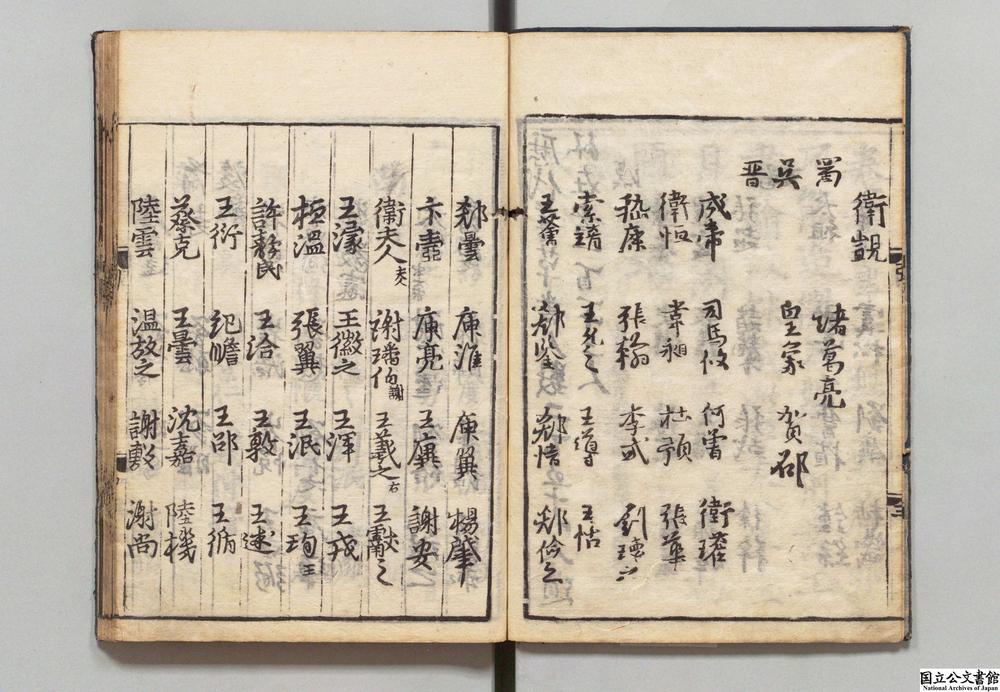 衛覬
蜀 諸葛亮
吳 皇象 賀邵
晉
成帝 司馬攸 何曾 衛瓘
衛恒 韋昶 杜預 張華
嵇康 張翰 李式 劉瓌之
索靖 王允之 王導 王恬
王薈 郗鑒 郗愔 郗儉之
郗曇 庾准 庾翼 楊肇
卞壼 庾亮 王廙 謝安
衛夫人 謝璠伯 王羲之 王獻之
王濛 王徽之 王渾 王戎
桓溫 張翼 王珉 王珣
許靜民 王洽 王敦 王述
王衍 紀瞻 王邵 王循
蔡克 王曇 沈嘉 陸機
陸雲 温放之 謝敷 謝尚
国立公文書館
National Archives of Japan